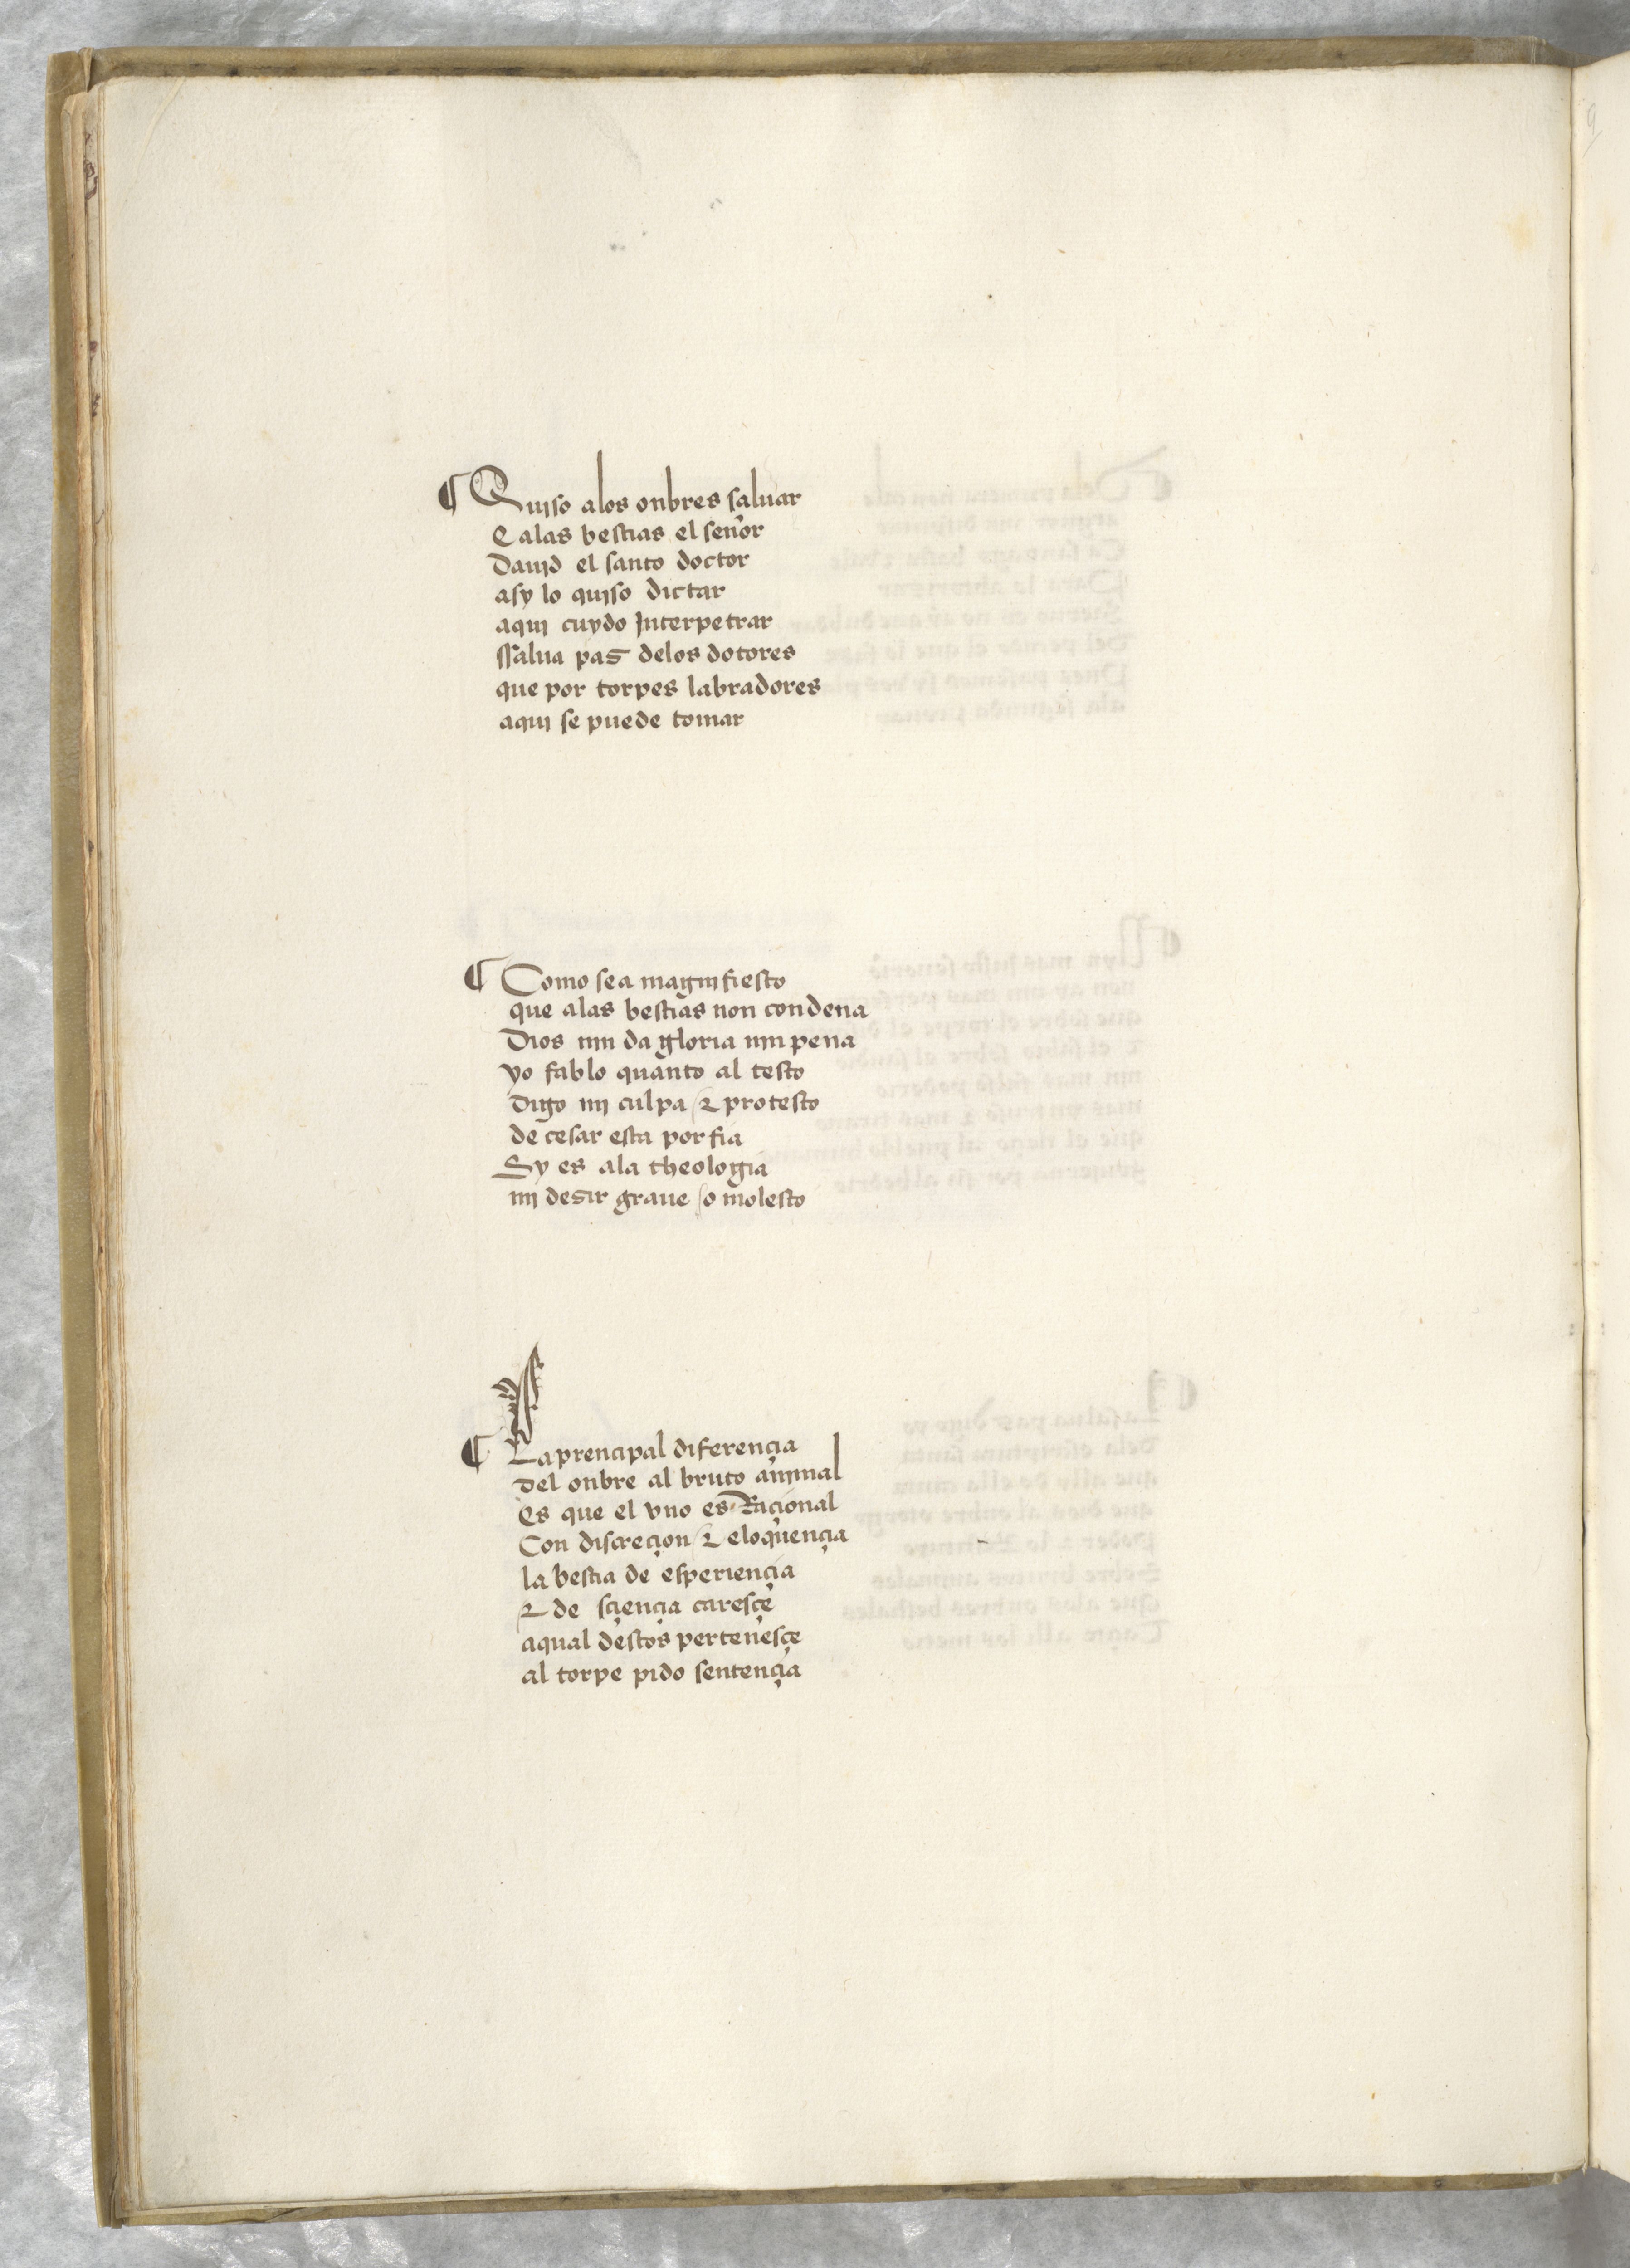 ¶ Quiso alos onbres saluar
E alas bestias el señor
Dauid el santo doctor
asy lo quiso dictar
aqui cuydo Interpetrar
ssalua paz delos dotores
que por torpes labradores
aqui se puede tomar
¶ Como sea magnifiesto
que alas bestias non condena
Dios nin da gloria nin pena
yo fablo quanto al testo
Digo mi culpa & protesto
de cesar esta porfia
Sy es ala theologia
mi dezir graue o molesto
¶ La prencipal diferençia
del onbre al bruto animal
Es que el vno es Raçional
Con discreçion & eloquençia
la bestia de esperiençia
& de sçiençia caresçe
aqual destos pertenesçe
al torpe pido sentençia